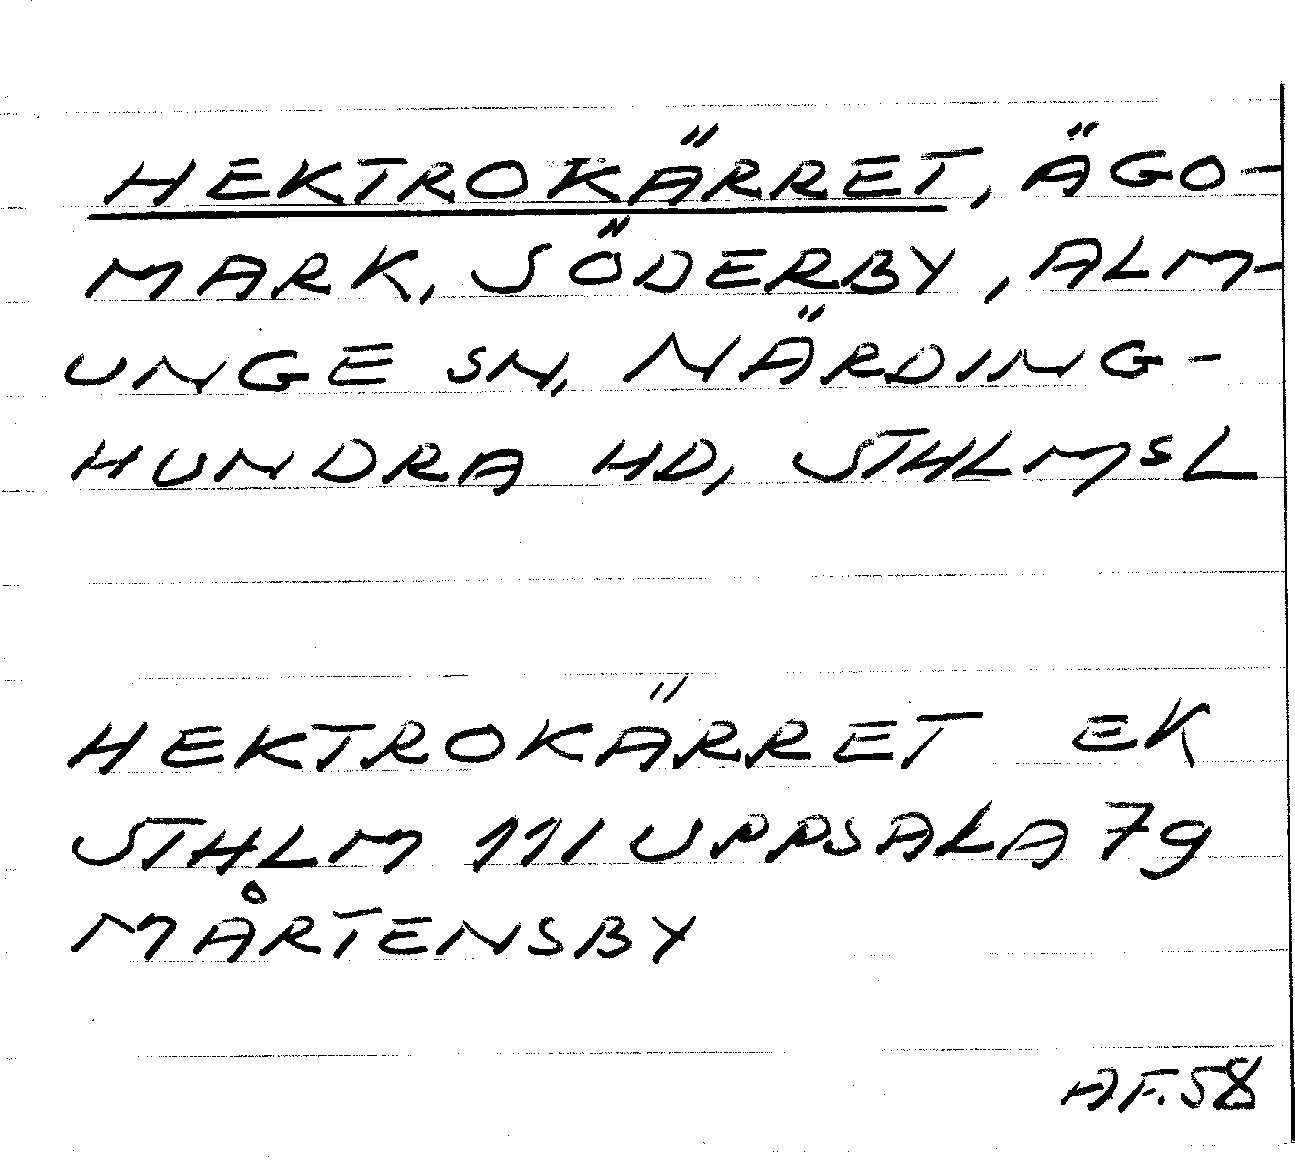 HEKTROKÄRRET, ÄGO-
MARK, SÖDERBY, ALM-
UNGE SN, NÄRDING-
HUNDRA HD, STHLMSL
HEKTROKÄRRET EK
STHLM 111 UPPSALA 79
MÅRTENSBY
AF.58